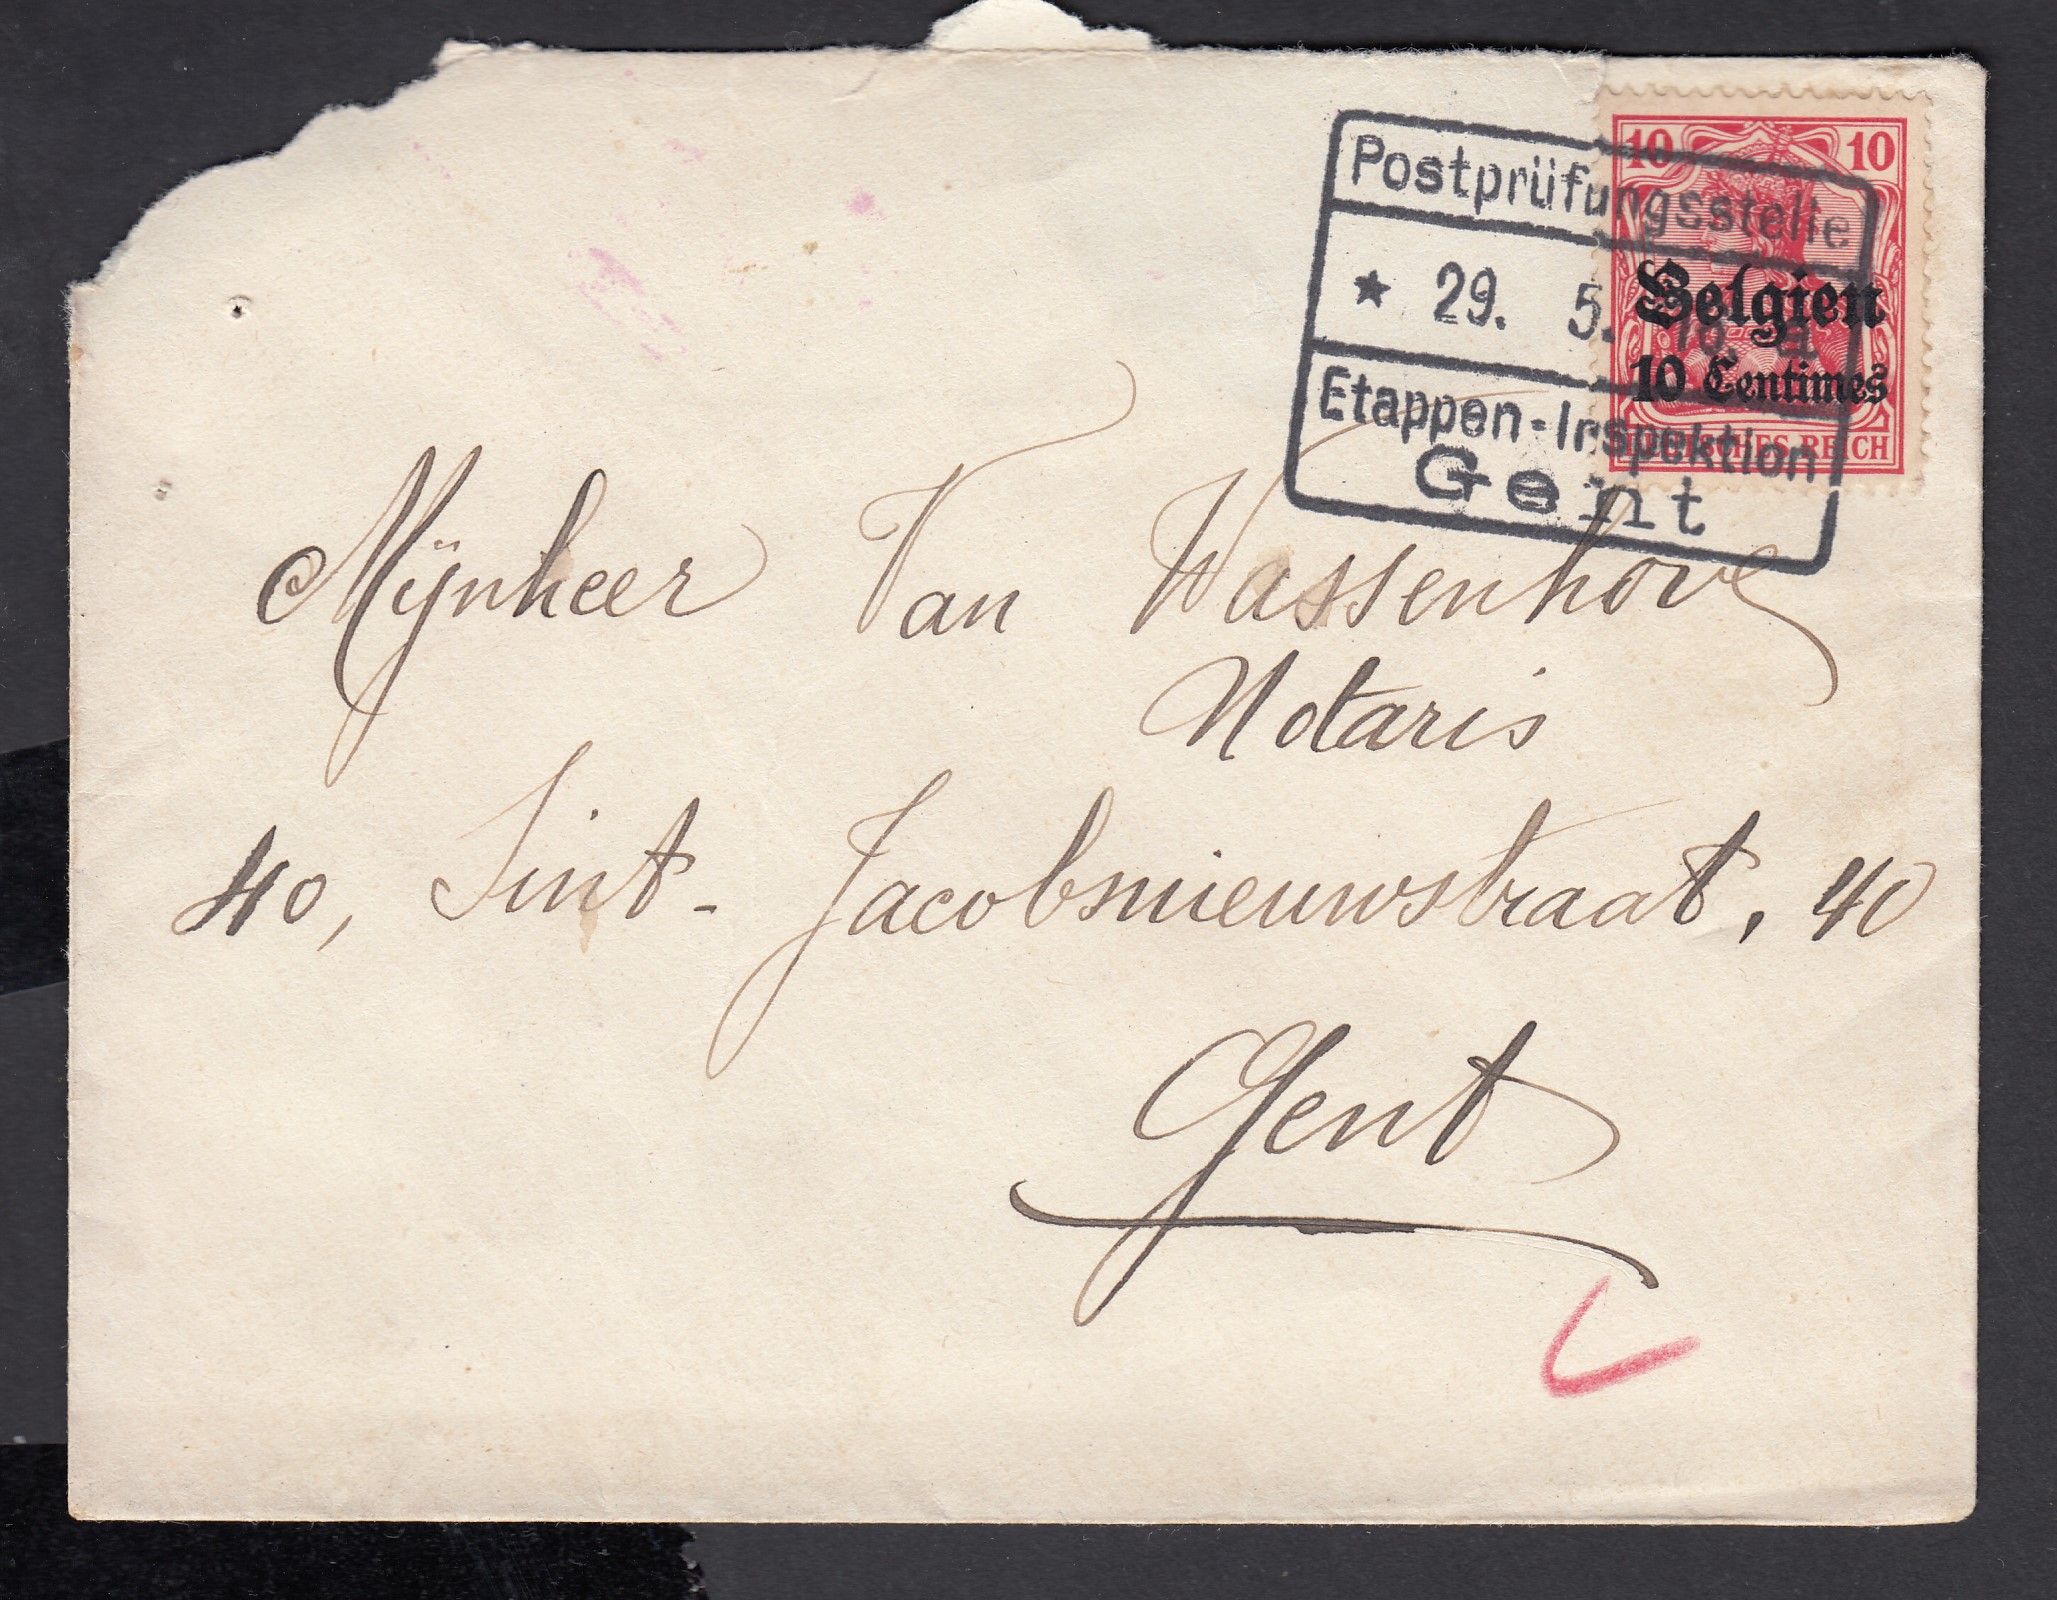 Postprüfungsstelle
★ 29. 5.
Etappen-Inspektion
Gent
10 10
Belgien
10 Centimes
DEUTSCHES REICH
Mijnheer Van Wassenhove
Notaris
40, Sint-Jacobsnieuwstraat, 40
Gent